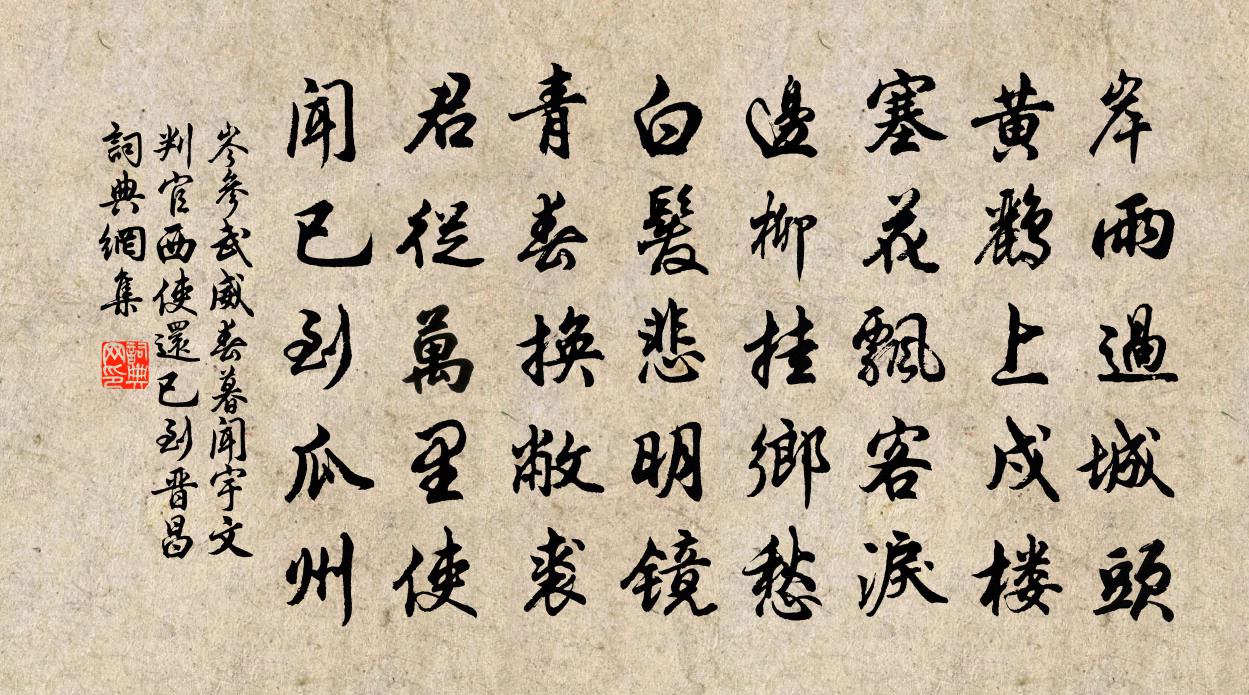 岸雨過城頭
黄鸝上戍楼
塞花飄客淚
邊柳挂鄉愁
白髮悲明镜
青春換敝裘
君從萬里使
聞已到瓜州
岑參武威春暮聞宇文
判官西使還已到晋昌
詞典網集
詞典
网印